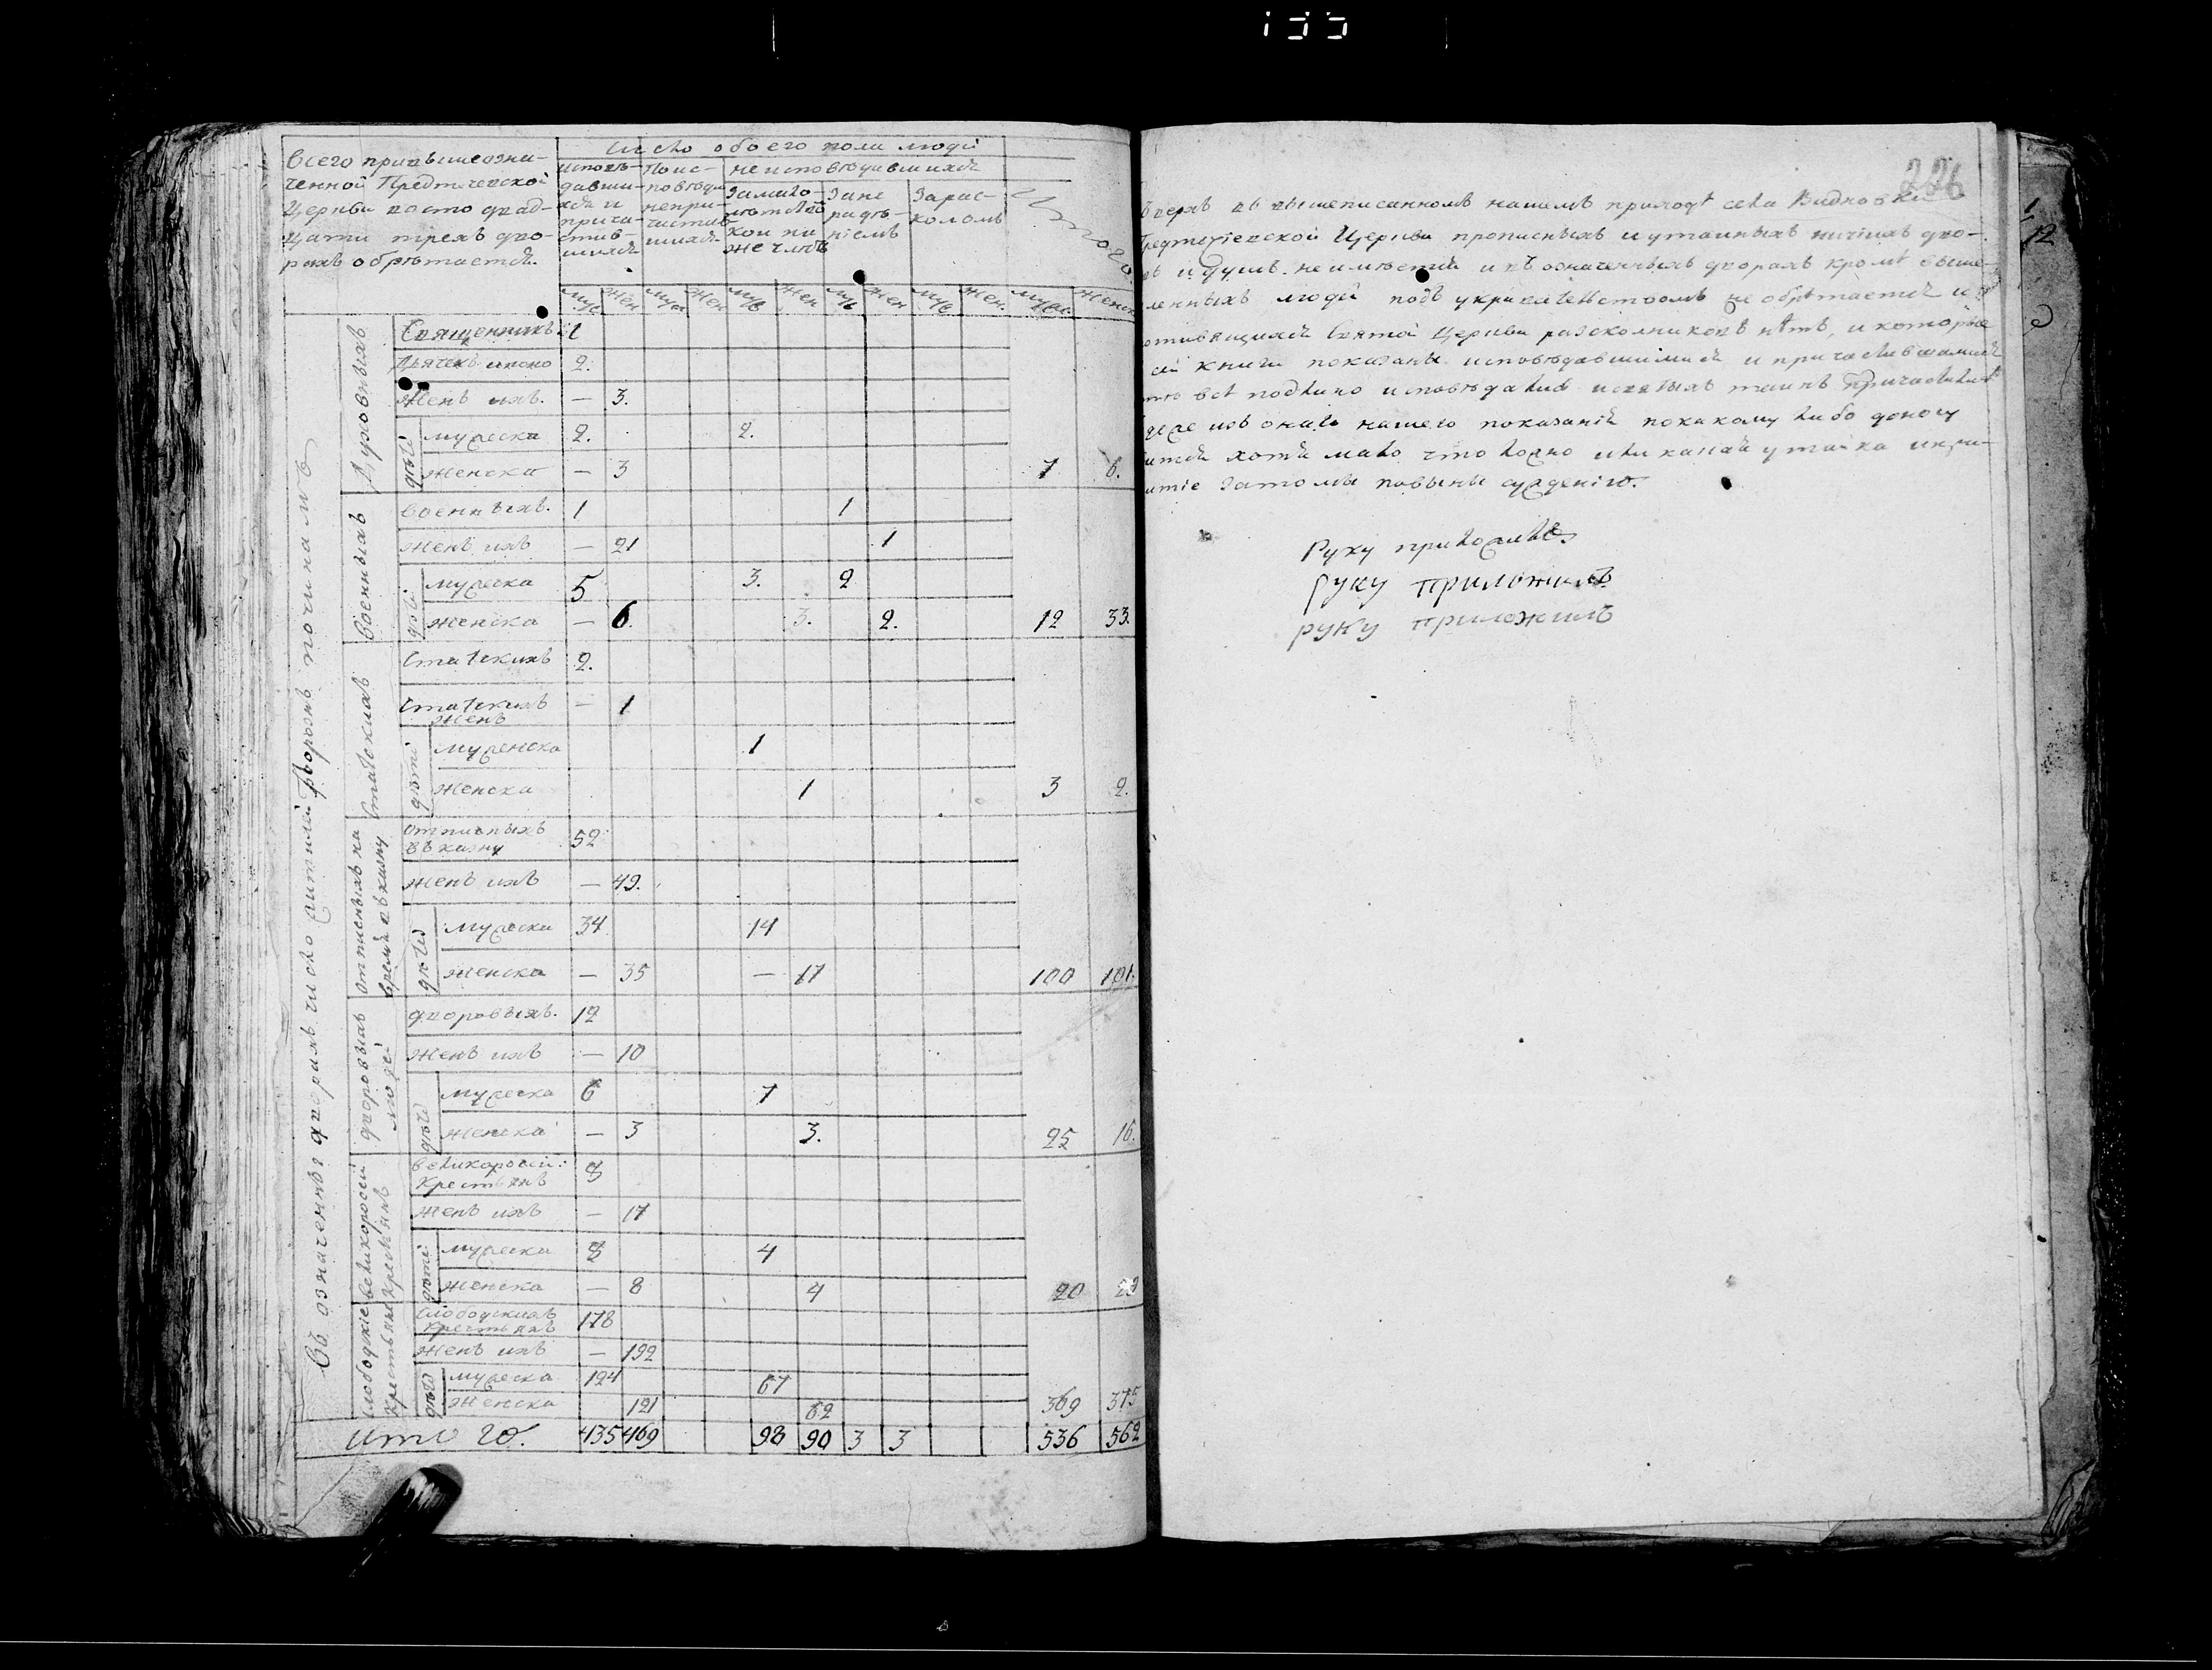 155
Всего привышеозна-
ченной Предтечевской
Церкви восто двад-
цати трехъ дво-
рахъ обрѣтается.
число обоего пола людей
исповѣ-
давши-
хся и
прича-
стив-
шихся
Поис-
повѣда
непри-
частив-
шихся
неисповѣдавшихся
Замало-
лѣтст
Зане
радѣ-
ніемъ
Зарас-
коломъ
Итого
муж
жен
муж
жен
муж
жен
муж
жен
муж
жен.
муж.
женск
Въ означенныхъ дворахъ число
Духовныхъ
Священникъ 1
2.
Женъ ихъ. — 3.
дѣтей
мужеска 2. 2.
женска — 3 7 6.
Военныхъ
военныхъ. 1 1
женъ ихъ — 21 1
дѣтей
мужеска 5 3. 2
женска — 6. 3. 2. 12 33.
Статскихъ
статскихъ 2.
статскихъ
женъ — 1
дѣтей
муженска 1
женска 1 3 2.
отписныхъ на
время въ казну
отписныхъ
въ казну 52
женъ ихъ — 49.
дѣтей
мужеска 34 14
женска — 35 — 17 100 101.
дворовыхъ
людей
дворовыхъ. 12
женъ ихъ — 10
дѣтей
мужеска 6 7
женска — 3 3. 25 16.
великоросси
крестьянъ
великоросси:
крестьянъ 8
женъ ихъ — 17
дѣтей
мужеска 8 4
женска — 8 4 20 29
слободскіе
крестьяне
слободскихъ
крестьянъ 178
женъ ихъ — 192
дѣтей
мужеска 124 67
женска 121 62 369 375
итого. 435 469 98 90 3 3 536 562
226
въ вышеписанномъ нашемъ приходѣ села Видновки
Церкви прописныхъ и утаенныхъ ничіихъ дво-
и душъ неимѣется и въ означенныхъ дворахъ кромѣ выше-
ленныхъ людей подъ укривателствомъ не обрѣтается и
отивящихся Святой Церкви разсколниковъ нѣтъ, и которые
сей книги показаны исповѣдавшимися и причастившимися
всѣ подлино исповѣдалис и святыхъ таинъ причастилис
изъ онаго нашего показанія покакому либо доносу
ится хотя мало что ложно или какая утайка
итіе затомы повыны сужденію.
Руку приложилъ
руку приложилъ
руку приложилъ
1
12